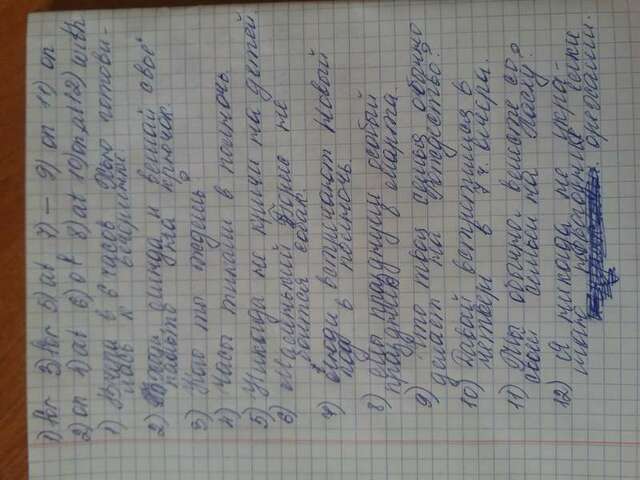 1) for 3) for 5) at 7) — 9) on 11) on
2) on 4) at 6) of 8) at 10) on, at 12) with
1) Вчера в 6 часов Хью готови-
лась к вечеринке.
2) сюда и вешай своё
пальто на крючок.
3) Кого ты ждёшь?
4) Часы тикали в полночь.
5) Никогда не кричи на детей.
6) Маленький Борис не
боится собак.
7) Люди встречают Новый
год в полночь.
8) Мы празднуем особый
праздник 8 марта.
9) Что твоя семья обычно
делает на Рождество?
10) Давай встретимся в
четверг в 7 ч. вечера.
11) Ты обычно вместе со
своей семьёй на Пасху?
12) Я никогда не укра-
шаю новогодние ёлки
орехами.